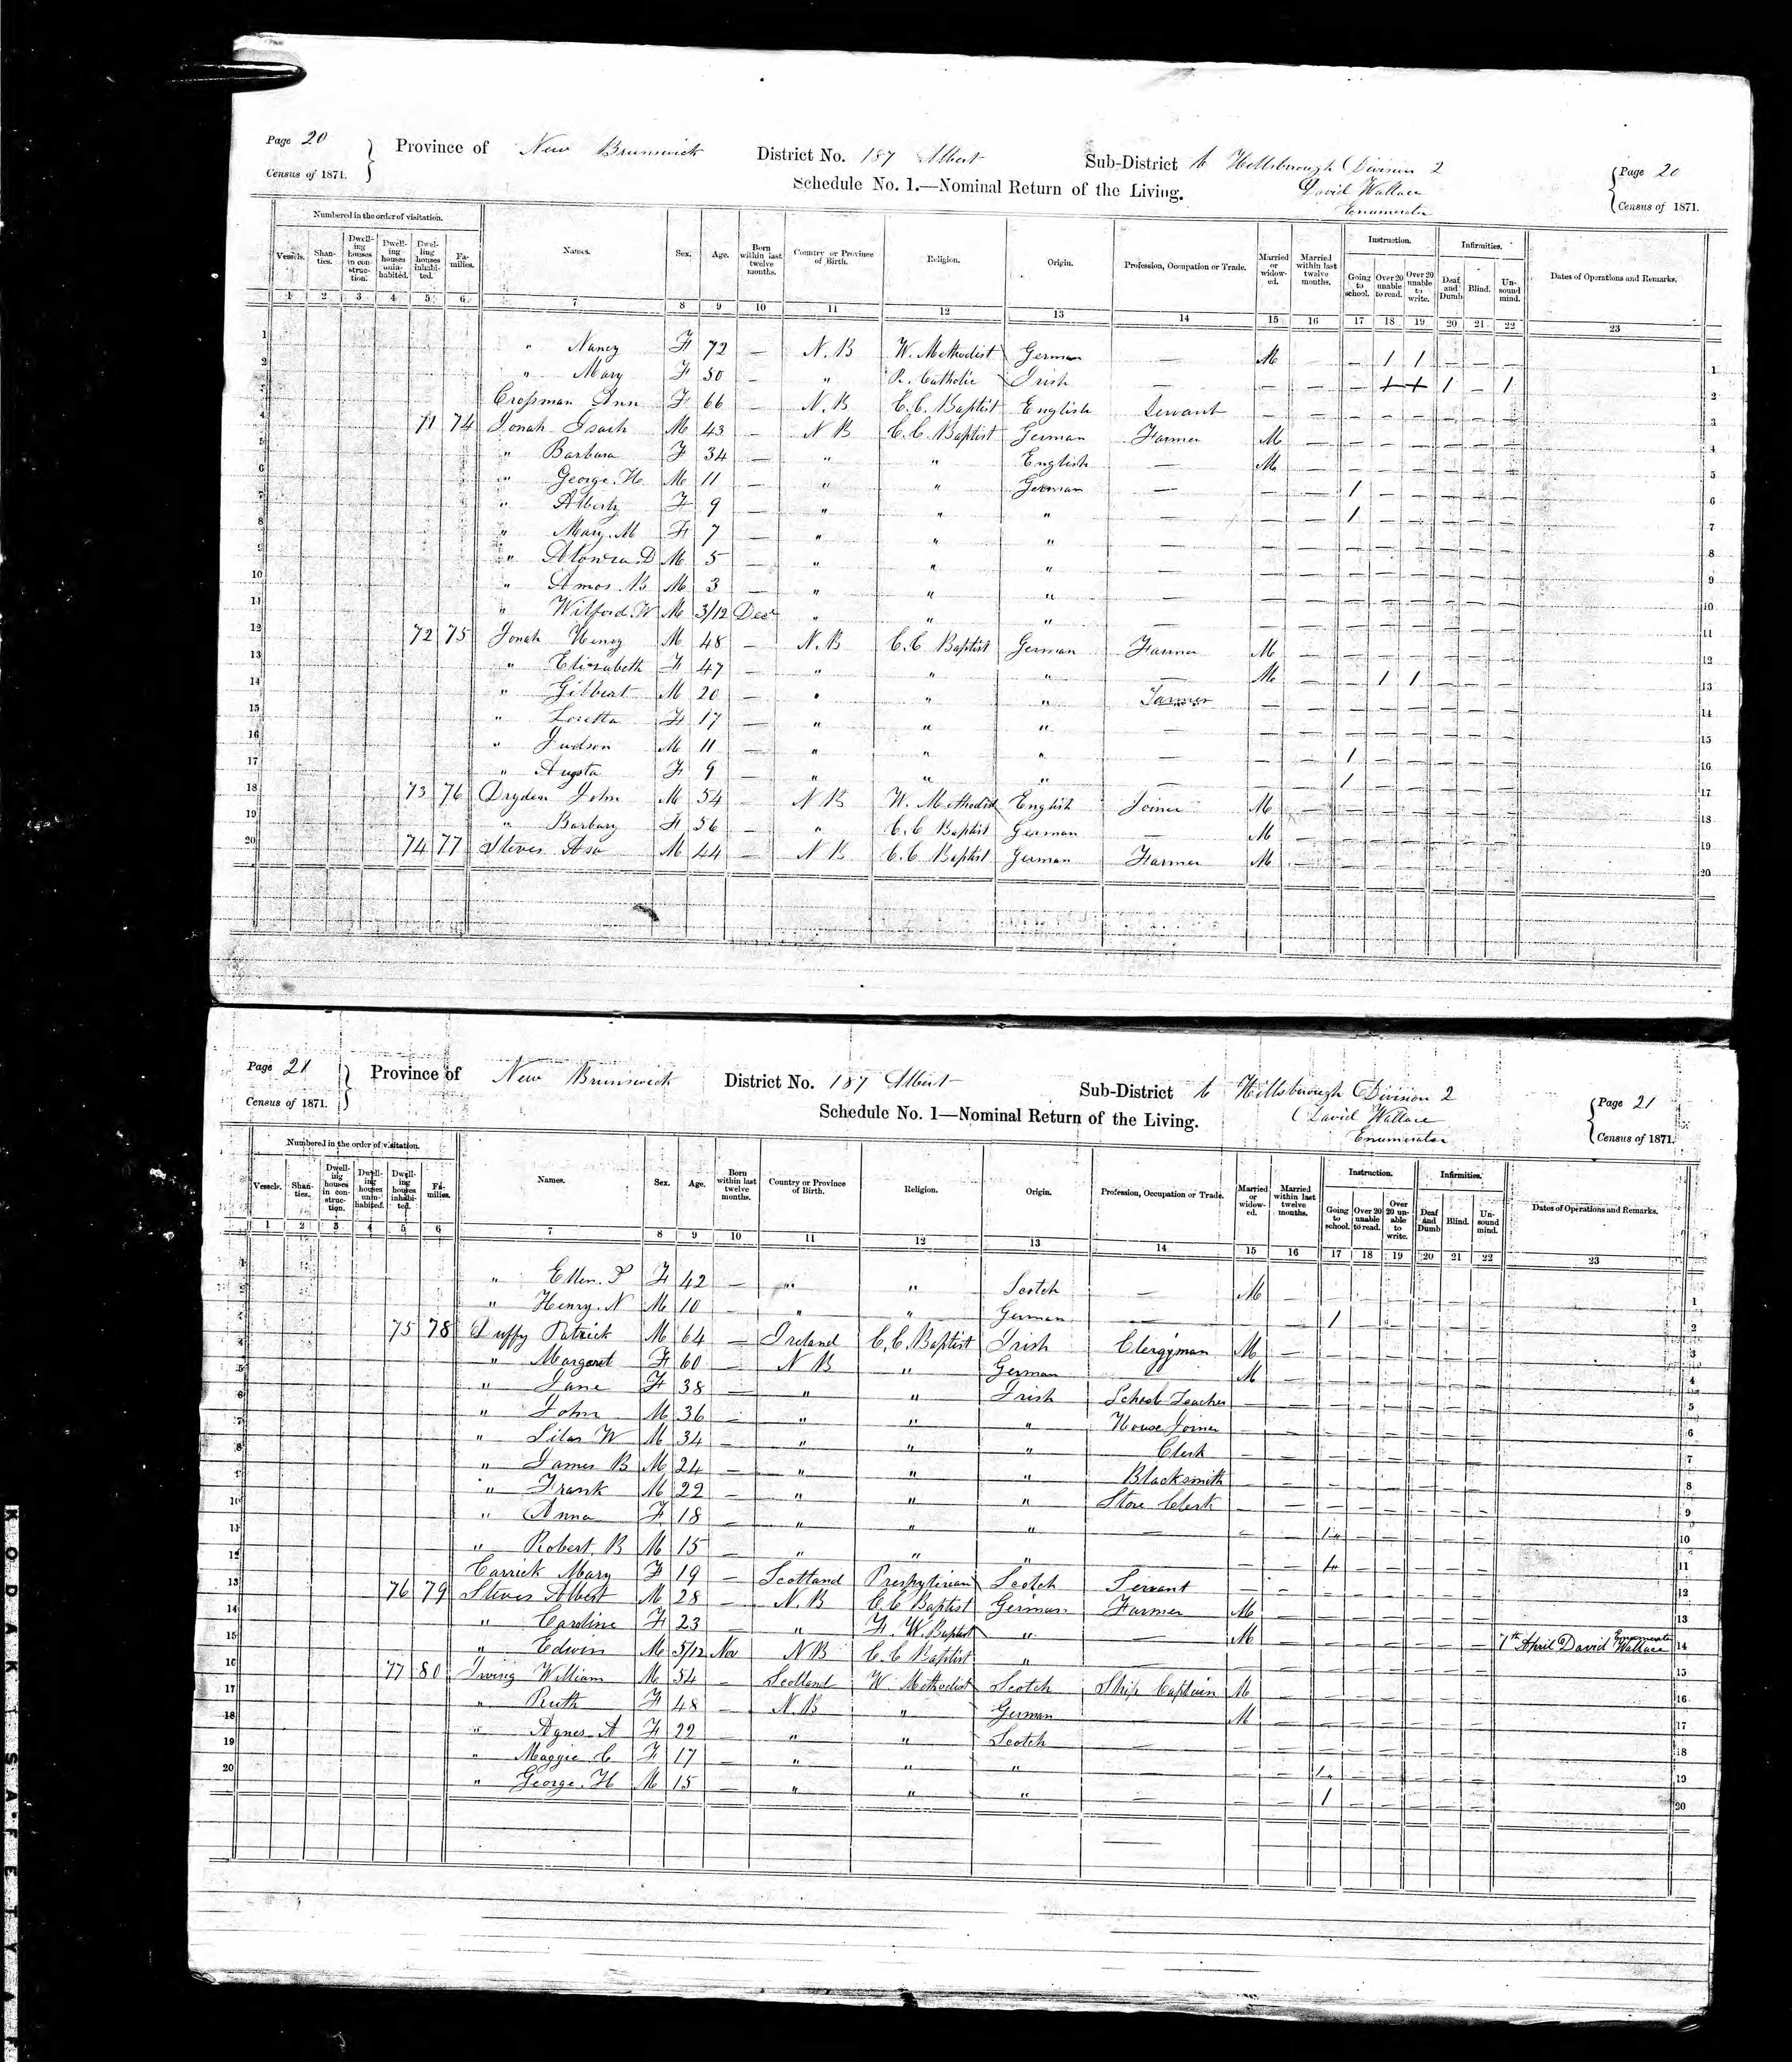 Page 20
Census of 1871.
Province of New Brunswick District No. 187 Albert Sub-District Hillsborough Division 2
Schedule No. 1.—Nominal Return of the Living.
David Wallace
Enumerator
Page 20
Census of 1871.
Numbered in the order of visitation.
Vessels. Shanties. Dwelling houses in construction. Dwelling houses uninhabited. Dwelling houses inhabited. Families. Names. Sex. Age. Born within last twelve months. Country or Province of Birth. Religion. Origin. Profession, Occupation or Trade. Married or widowed. Married within last twelve months. Instruction. Going to school. Over 20 unable to read. Over 20 unable to write. Infirmities. Deaf and Dumb Blind. Unsound mind. Dates of Operations and Remarks.
1 2 3 4 5 6 7 8 9 10 11 12 13 14 15 16 17 18 19 20 21 22 23
1 " Nancy F 72 — N. B W. Methodist German — M — — 1 1 — — — 1
2 " Mary F 50 — " R. Catholic Irish — — — — 1 1 1 — 1 2
3 Crossman Ann F 66 — N. B C. C. Baptist English Servant — — — — — — — — 3
4 71 74 Jonah Isach M 43 — N B C. C. Baptist German Farmer M — — — — — — — 4
5 " Barbara F 34 — " " English — M — — — — — — — 5
6 " George. H. M 11 — " " German — — — 1 — — — — — 6
7 " Alberty F 9 — " " " — — — 1 — — — — — 7
8 " Mary. M F 7 — " " " — — — — — — — — — 8
9 " Alonza. D M 5 — " " " — — — — — — — — — 9
10 " Amos. B M 3 — " " " — — — — — — — — — 10
11 " Wilford. W M 3/12 Decr " " " — — — — — — — — — 11
12 72 75 Jonah Henry M 48 — N. B C. C Baptist German Farmer M — — — — — — — 12
13 " Elizabeth F 47 — " " " — M — — 1 1 — — — 13
14 " Gilbert M 20 — " " " Farmer — — — — — — — — 14
15 " Loretta F 17 — " " " — — — — — — — — — 15
16 " Judson M 11 — " " " — — — 1 — — — — — 16
17 " Augsta F 9 — " " " — — — 1 — — — — — 17
18 73 76 Dryden John M 54 — N B W. Methodist English Joiner M — — — — — — — 18
19 " Barbary F 56 — " C. C Baptist German — M — — — — — — — 19
20 74 77 Steves Asa M 44 — N B C. C Baptist German Farmer M — — — — — — — 20
Page 21
Census of 1871.
Province of New Brunswick District No. 187 Albert Sub-District Hillsborough Division 2
Schedule No. 1—Nominal Return of the Living.
David Wallace
Enumerator
Page 21
Census of 1871.
Numbered in the order of visitation.
Vessels. Shanties. Dwelling houses in construction. Dwelling houses uninhabited. Dwelling houses inhabited. Families. Names. Sex. Age. Born within last twelve months. Country or Province of Birth. Religion. Origin. Profession, Occupation or Trade. Married or widowed. Married within last twelve months. Instruction. Going to school. Over 20 unable to read. Over 20 unable to write. Infirmities. Deaf and Dumb Blind. Unsound mind. Dates of Operations and Remarks.
1 2 3 4 5 6 7 8 9 10 11 12 13 14 15 16 17 18 19 20 21 22 23
1 " Ellen. P F 42 — " " Scotch — M — — — — — — — 1
2 " Henry. N M 10 — " " German — — — 1 — — — — — 2
3 75 78 Duffy Patrick M 64 — Ireland C. C. Baptist Irish Clergyman M — — — — — — — 3
4 " Margaret F 60 — N B " German — M — — — — — — — 4
5 " Jane F 38 — " " Irish School Teacher — — — — — — — — 5
6 " John M 36 — " " " House Joiner — — — — — — — — 6
7 " Silas W M 34 — " " " Clerk — — — — — — — — 7
8 " James B M 24 — " " " Blacksmith — — — — — — — — 8
9 " Frank M 22 — " " " Store Clerk — — — — — — — — 9
10 " Anna F 18 — " " " — — — 1 — — — — — 10
11 " Robert. B M 15 — " " " — — — 1 — — — — — 11
12 Carrick Mary F 19 — Scotland Presbyterian Scotch Servant — — — — — — — — 12
13 76 79 Steves Albert M 28 — N. B C. C Baptist German Farmer M — — — — — — — 13
14 " Caroline F 23 — " F. W. Baptist " — M — — — — — — — 7th April David Wallace Enumerator 14
15 " Edwin M 5/12 Nov N B C. C Baptist " — — — — — — — — — 15
16 77 80 Irving William M 54 — Scotland W. Methodist Scotch Ship Captain M — — — — — — — 16
17 " Ruth F 48 — N. B " German — M — — — — — — — 17
18 " Agnes. A F 22 — " " Scotch — — — — — — — — — 18
19 " Maggie C F 17 — " " " — — — 1 — — — — — 19
20 " George. H M 15 — " " " — — — 1 — — — — — 20
KODAK SAFETY